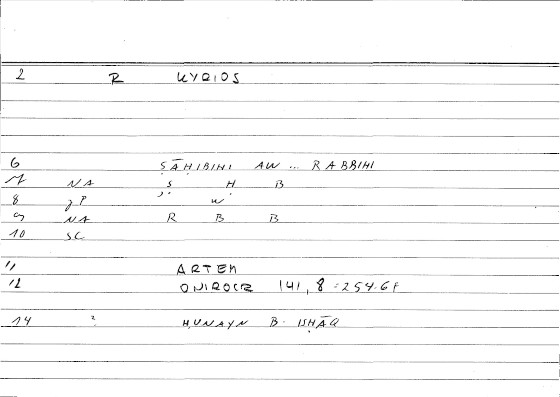 2 R KYRIOS
6 ṢĀḤIBIHI AW ... RABBIHI
7 NA Ṣ Ḥ B
8 P W
9 NA R B B
10 SC
11 ARTEM
12 ONIROCR 141, 8 = 254.6f
14 ? ḤUNAYN B. ISḤĀQ